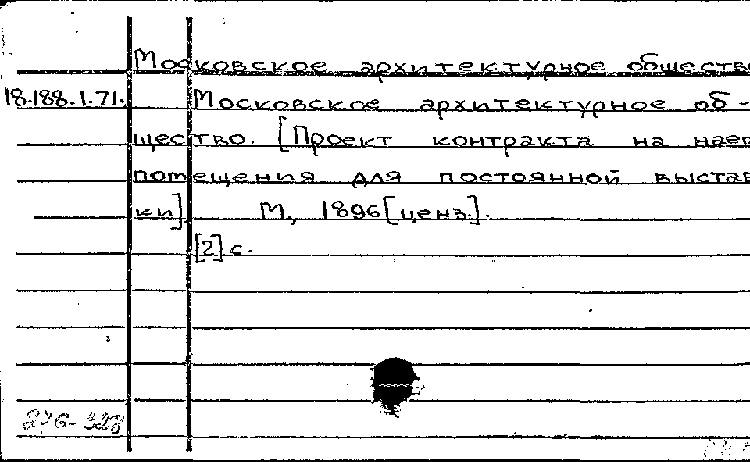 Московское архитектурное общество
18.188.1.71. Московское архитектурное об-
щество. [Проект контракта на наем
помещения для постоянной выстав
ки]. М., 1896 [ценз.].
[2] с.
276-328